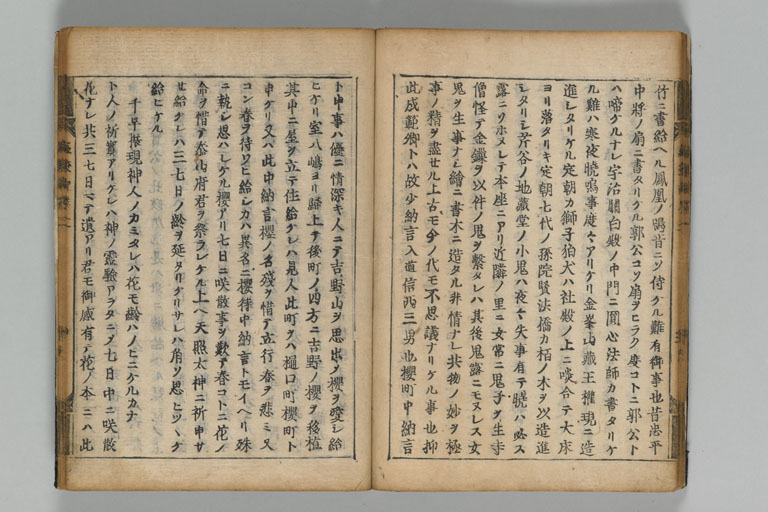 竹ニ書給ヘル鳳凰ノ鳴音ニソ侍ケル難有御事也昔忠平
中将ノ扇ニ書タリケル郭公コソ扇ヲヒラク度コトニ郭公ト
ハ啼ケルナレ宇治關白殿ノ中門ニ圓心法師カ書タリケ
ル難ハ寒夜暁鳴事度々アリケリ金峯山藏王權現ニ造
進シタリケル定朝カ獅子狛犬ハ社殿ノ上ニ啖合テ大床
ヨリ落タリキ定朝七代ノ孫院賢法橋カ栢ノ木ヲ以造進
シタリシ芹谷ノ地藏堂ノ小鬼ハ夜々失事有テ暁ハ必ス
露ニソホヌレテ本座ニアリ近隣ノ里ニ女常ニ鬼子ヲ生寺
僧怪テ金鏁ヲ以件ノ鬼ヲ繫タレハ其後鬼露ニモヌレス女
鬼ヲ生事ナシ繪ニ書木ニ造タル非情ナレ共物ノ妙ヲ極
事ノ精ヲ盡セル上古モ今ノ代モ不思議ナリケル事也抑
此成範卿トハ故少納言入道信西三男也櫻町中納言
ト申事ハ優ニ情深キ人ニテ吉野山ヲ思出ノ櫻ヲ愛シ給
ヒケリ室八嶋ヨリ歸上テ後町ノ四方ニ吉野ノ櫻ヲ移植
其中ニ屋ヲ立テ住給ケレハ見人此町ヲハ樋口町櫻町ト
申ケリ又ハ此中納言櫻ノ名殘ヲ惜テ立行春ヲ悲ミ又
コン春ヲ待ワヒ給シカハ異名ニ櫻待中納言トモイヘリ殊
ニ執シ思ハレケル櫻アリ七日ニ咲散事ヲ歎テ春コトニ花ノ
命ヲ惜テ泰山府君ヲ祭ラレケル上ヘ天照太神ニ祈申サ
セ給ケレハ三七日ノ齡ヲ延タリケリサレハ角ソ思ヒツヽケ
給ヒケル
千早振現神人ノカミタレハ花モ齡ハノヒニケルカナ
ト人ノ祈實アリケレハ神ノ靈驗アラタニテ七日中ニ咲散
花ナレ共三七日マテ遺アリ君モ御感有テ花ノ本ニハ此